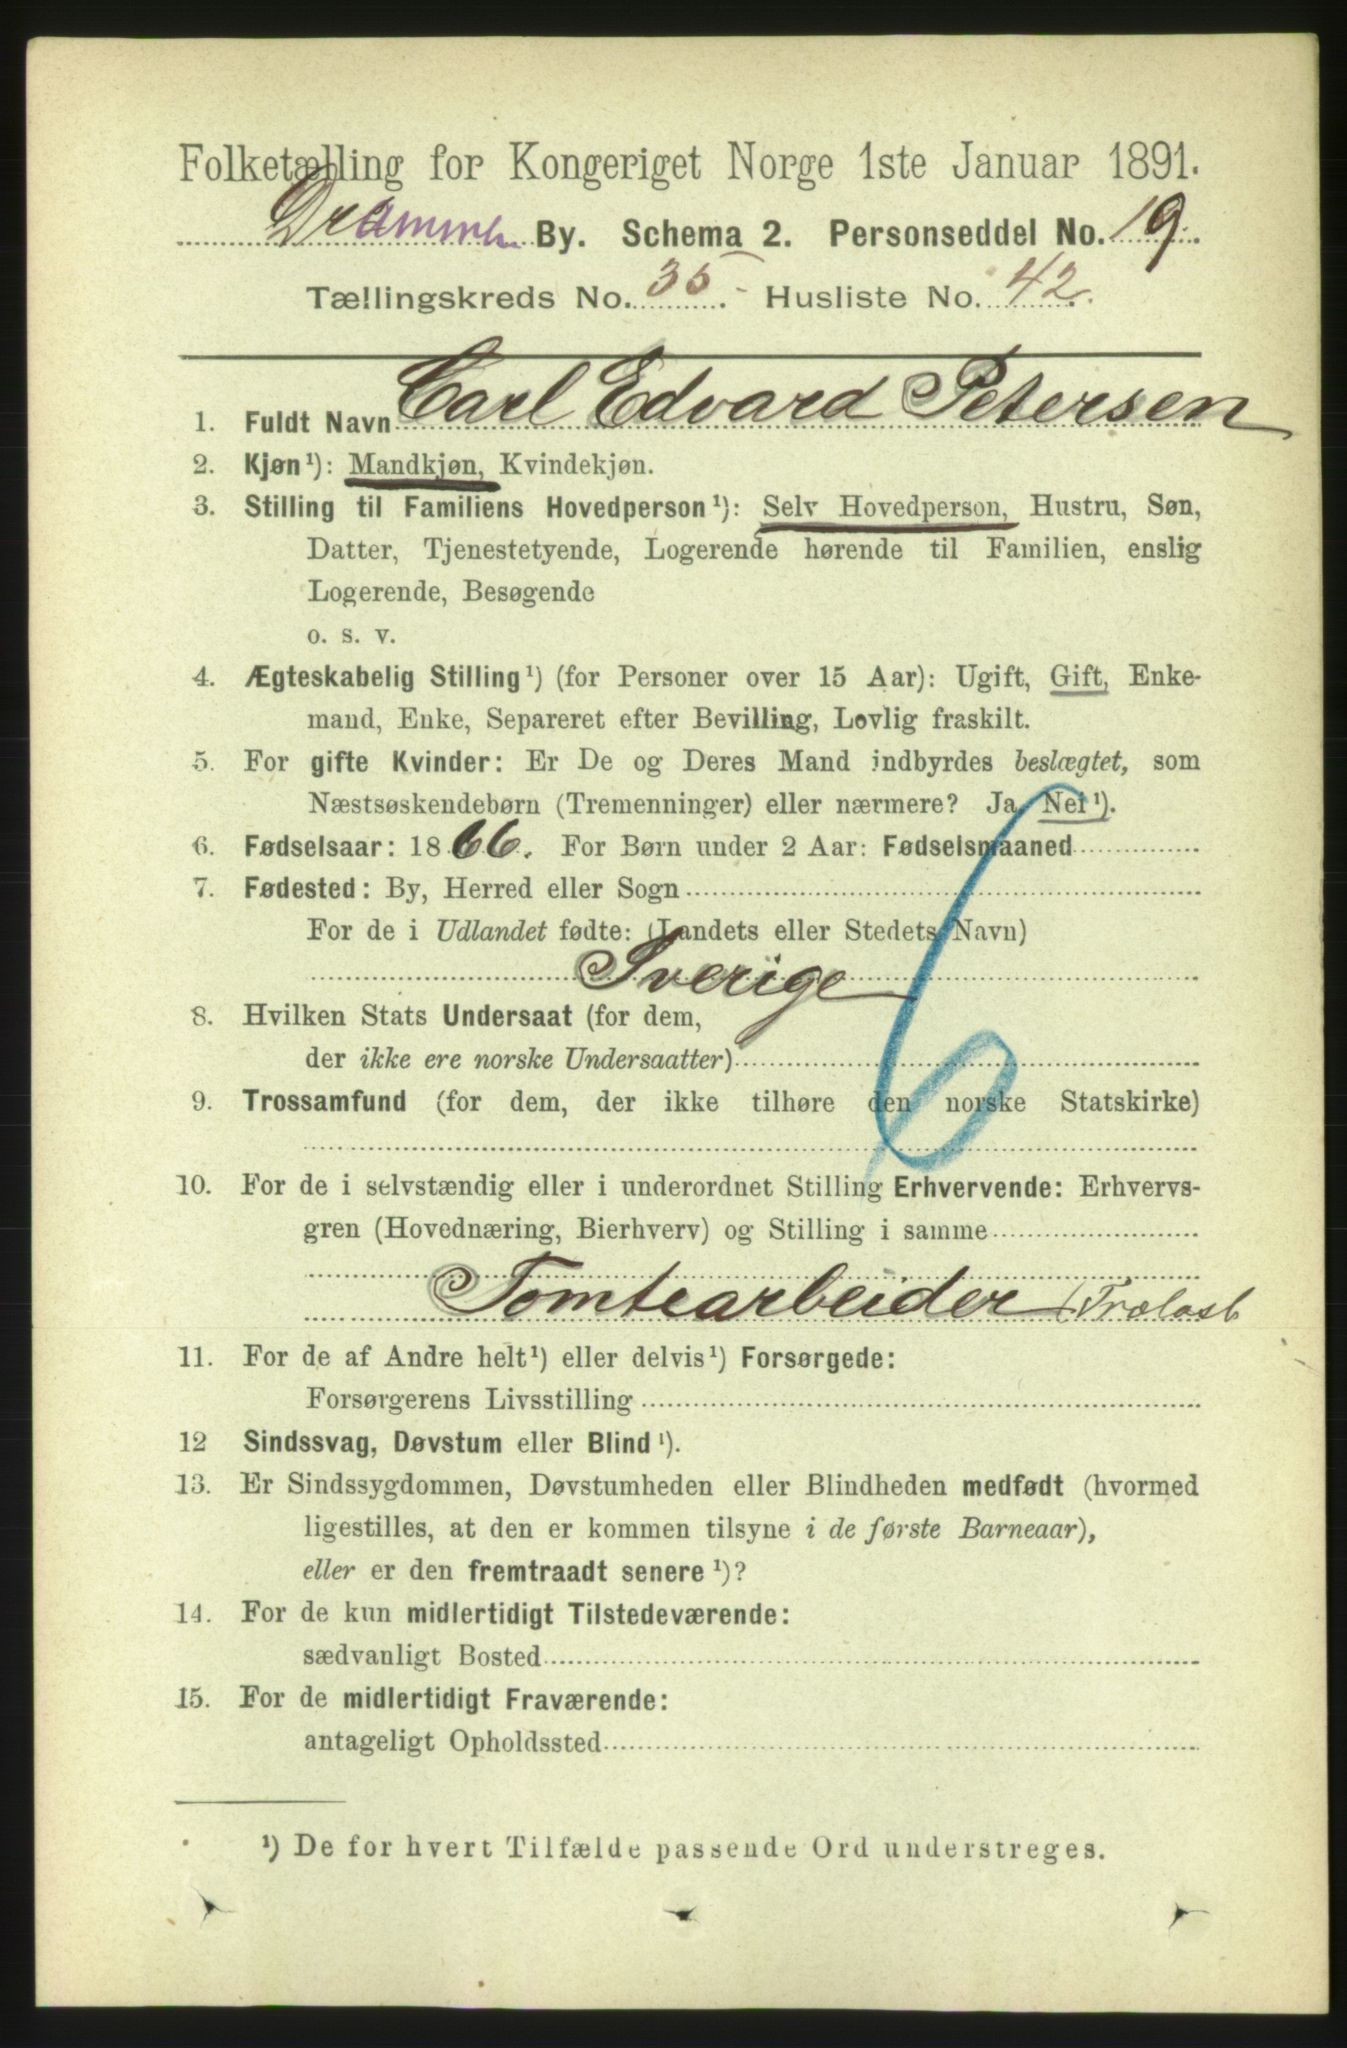 Folketælling for Kongeriget Norge 1ste Januar 1891.
Drammen By. Schema 2. Personseddel No. 19.
Tællingskreds No. 35. Husliste No. 42.
1. Fuldt Navn Carl Edvard Petersen
2. Kjøn¹): Mandkjøn, Kvindekjøn.
3. Stilling til Familiens Hovedperson¹): Selv Hovedperson, Hustru, Søn,
Datter, Tjenestetyende, Logerende hørende til Familien, enslig
Logerende, Besøgende
o. s. v.
4. Ægteskabelig Stilling¹) (for Personer over 15 Aar): Ugift, Gift, Enke-
mand, Enke, Separeret efter Bevilling, Lovlig fraskilt.
5. For gifte Kvinder: Er De og Deres Mand indbyrdes beslægtet, som
Næstsøskendebørn (Tremenninger) eller nærmere? Ja, Nei¹).
6. Fødselsaar: 1866. For Børn under 2 Aar: Fødselsmaaned
7. Fødested: By, Herred eller Sogn
For de i Udlandet fødte: (Landets eller Stedets Navn)
Sverige
6
8. Hvilken Stats Undersaat (for dem,
der ikke ere norske Undersaatter)
9. Trossamfund (for dem, der ikke tilhøre den norske Statskirke)
10. For de i selvstændig eller i underordnet Stilling Erhvervende: Erhvervs-
gren (Hovednæring, Bierhverv) og Stilling i samme
Tomtearbeider (Trælast
11. For de af Andre helt¹) eller delvis¹) Forsørgede:
Forsørgerens Livsstilling
12 Sindssvag, Døvstum eller Blind¹).
13. Er Sindssygdommen, Døvstumheden eller Blindheden medfødt (hvormed
ligestilles, at den er kommen tilsyne i de første Barneaar),
eller er den fremtraadt senere¹)?
14. For de kun midlertidigt Tilstedeværende:
sædvanligt Bosted
15. For de midlertidigt Fraværende:
antageligt Opholdssted
¹) De for hvert Tilfælde passende Ord understreges.